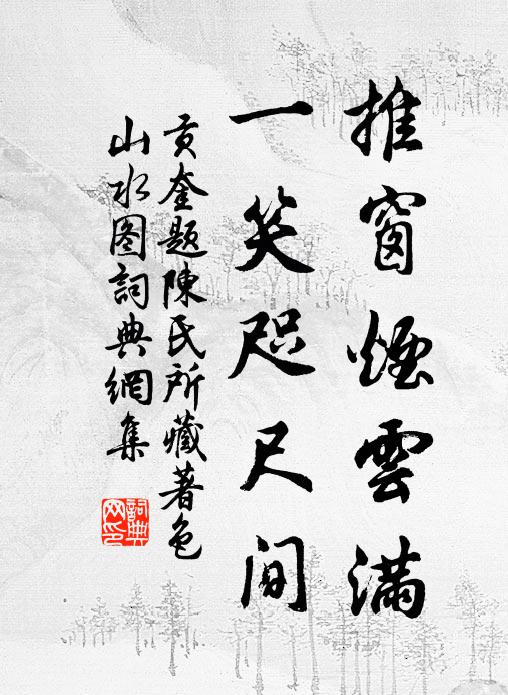 推窗煙雲滿
一笑咫尺间
贡奎題陳氏所藏著色
山水图詞典網集
詞典
网印